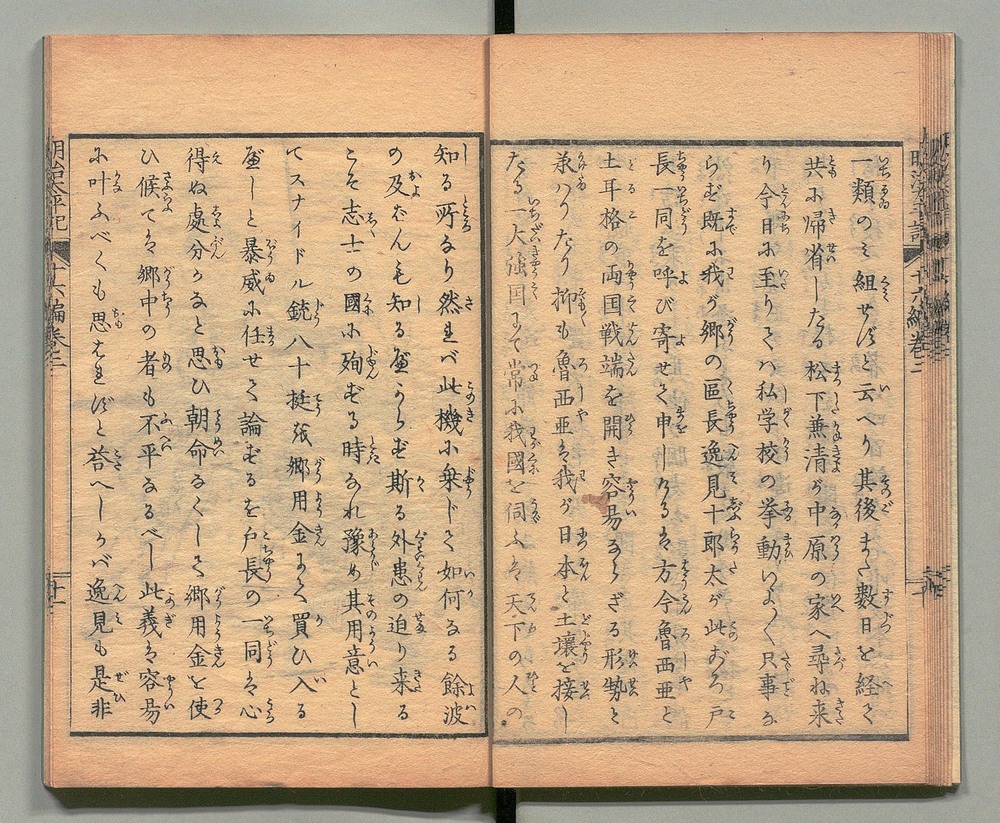 一類のミ組せずと云へり其後また数日を経て
共に帰省したる松下兼清が中原の家へ尋ね来
り今日に至りてハ私学校の挙動いよ〳〵只事な
らず既に我が郷の區長逸見十郎太が此ごろ戸
長一同を呼び寄せて申しけるは方今魯西亜と
土耳格の両国戦端を開き容易ならざる形勢と
兼ハりたり抑も魯西亜は我が日本と土壌を接し
たる一大強国にて常に我國を伺ふは天下の人の
知る所なり然れバ此機に乗じて如何なる餘波
の及ばんも知るべからず斯る外患の迫り来る
こそ志士の國に殉ずる時なれ豫め其用意とし
てスナイドル銃八十挺を郷用金にて買ひ入る
べしと暴威に任せて論ずるを戸長の一同は心
得ぬ處分かなと思ひ朝命なくして郷用金を使
ひ候ては郷中の者も不平なるべし此義は容易
に叶ふべくも思はれずと答へしかバ逸見も是非
明治太平記
十六編巻之二
十一